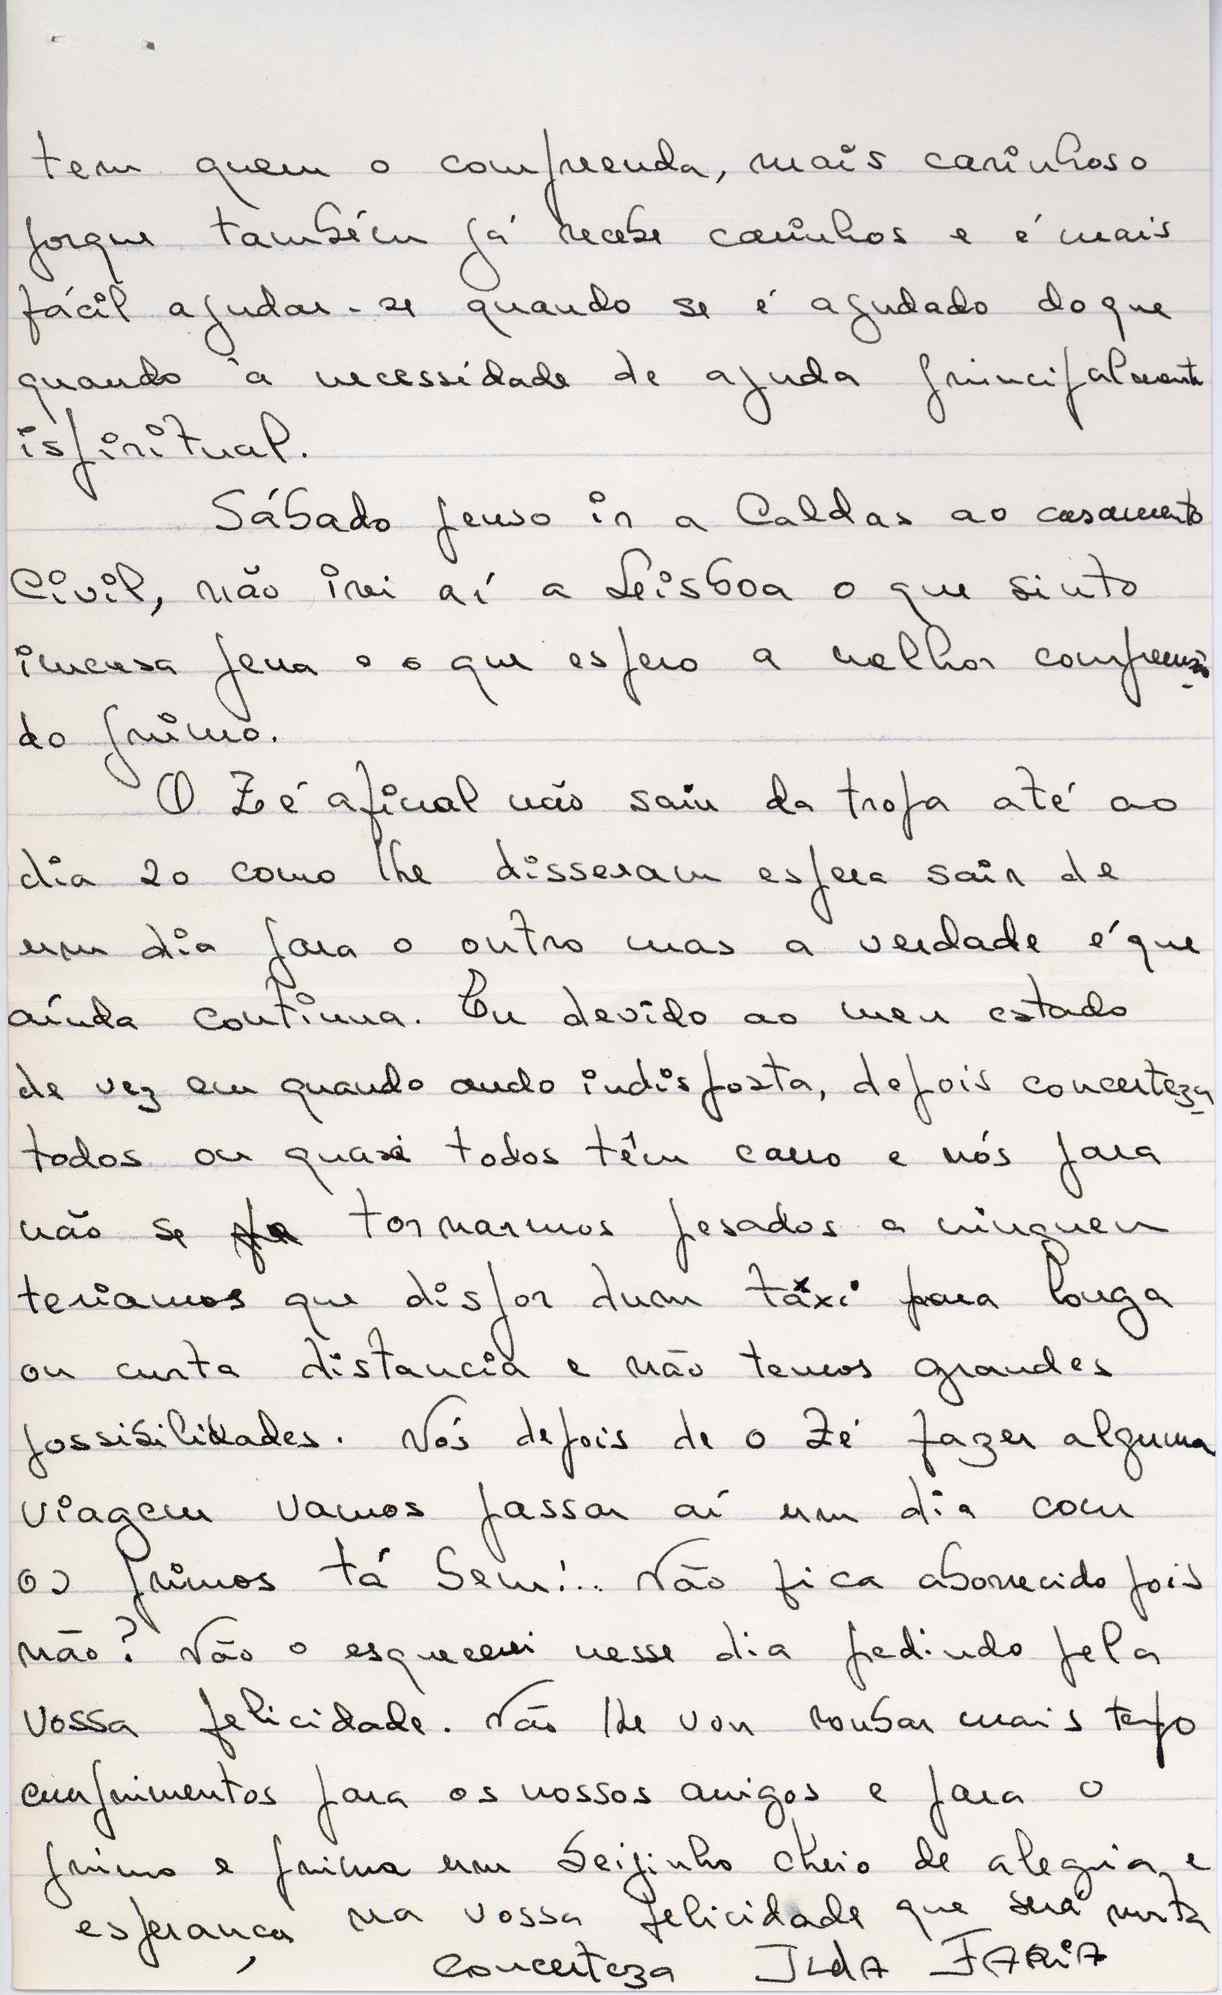 tem quem o compreenda, mais carinhoso
porque também já recebe carinhos e é mais
fácil ajudar-se quando se é ajudado doque
quando à necessidade de ajuda principalmente
ispiritual.
Sábado penso ir a Caldas ao casamento
Civil, não irei aí a Leisboa o que sinto
imensa pena e o que espero a melhor compreensão
do primo.
O Zé afinal não saiu da tropa até ao
dia 20 como lhe disseram espera sair de
um dia para o outro mas a verdade é que
aínda continua. Eu devido ao meu estado
de vez em quando ando indisposta, depois concerteza
todos ou quasi todos têm carro e nós para
não se tornarmos pesados a ninguem
teriamos que dispor dum táxi para longa
ou curta distancia e não temos grandes
possibilidades. Nós depois de o Zé fazer alguma
viagem vamos passar aí um dia com
os primos tá bem!.. Não fica aborrecido pois
não? Não o esquecerei nesse dia pedindo pela
vossa felicidade. Não lhe vou roubar mais tempo
cumprimentos para os nossos amigos e para o
primo e prima um beijinho cheio de alegria e
esperança na vossa felicidade que será muita
concerteza Ilda Faria